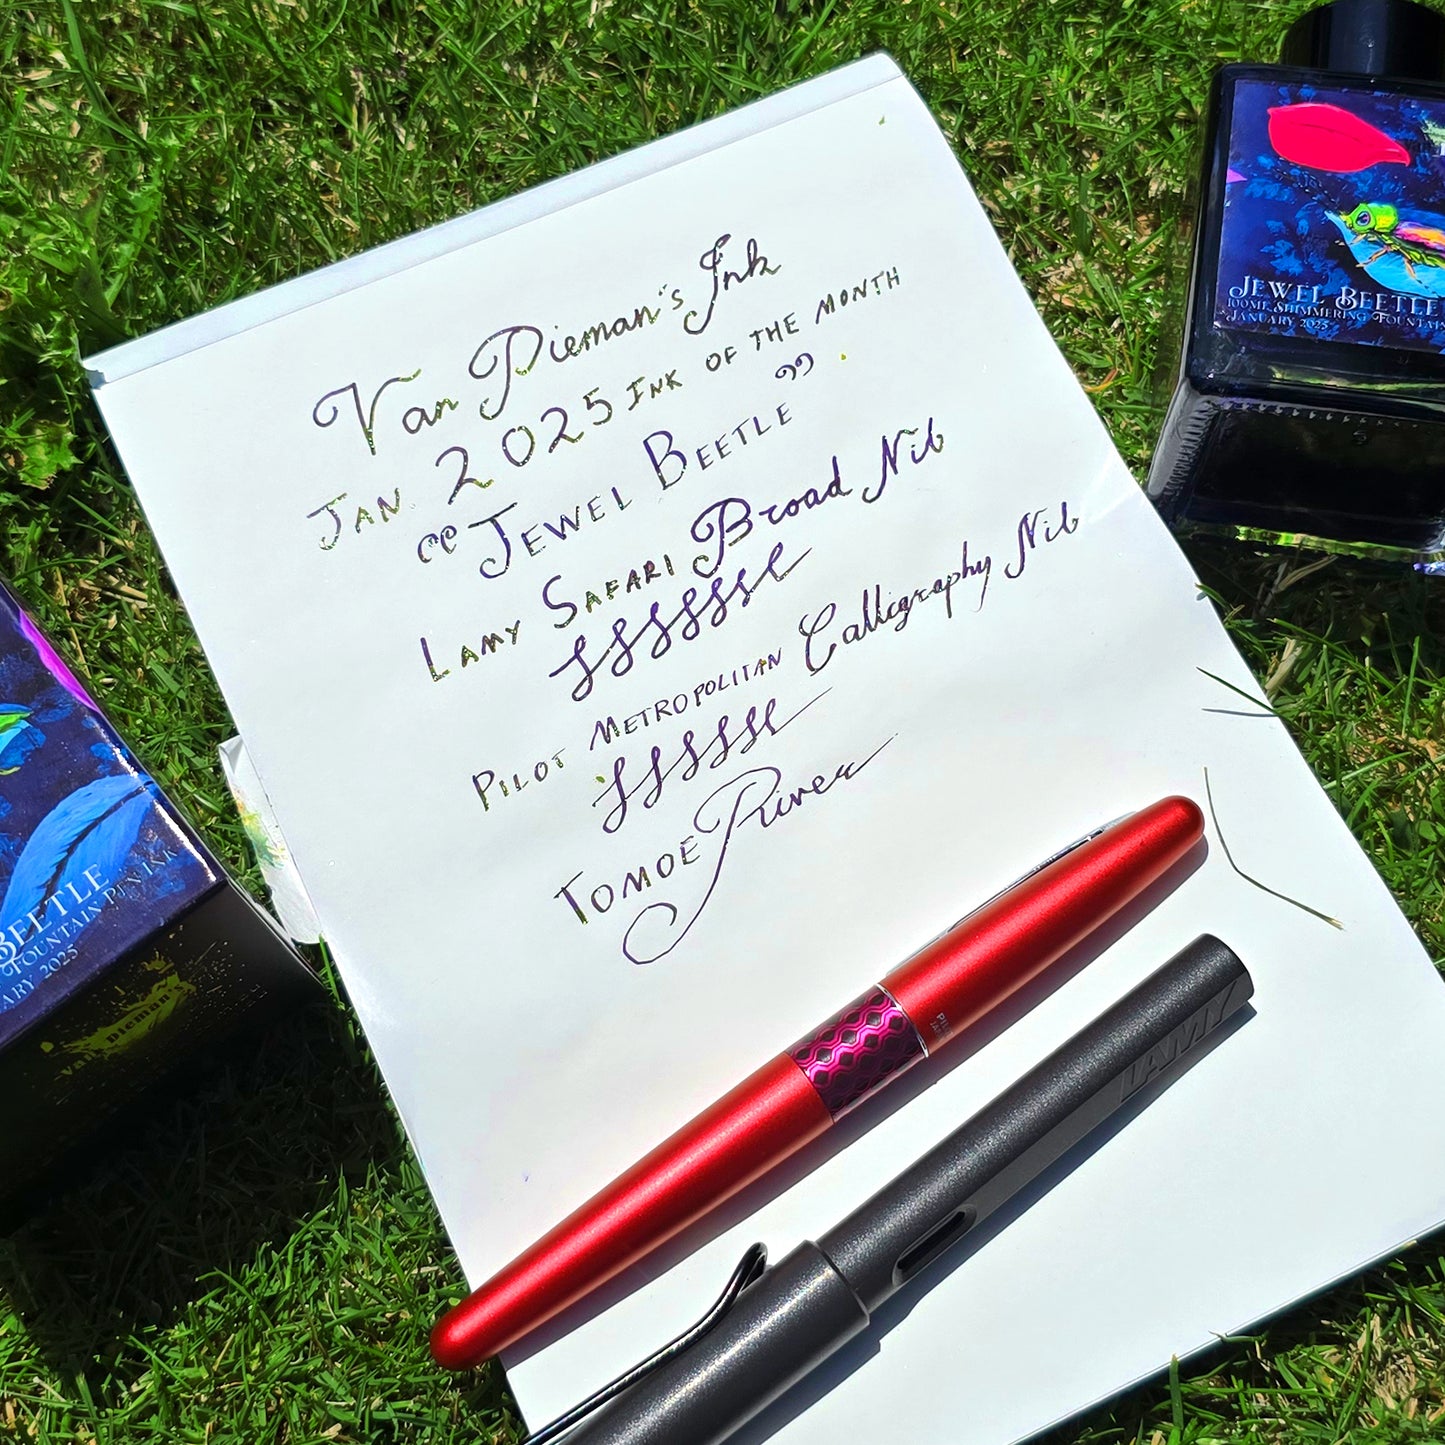 Van Dieman's Ink
Jan. 2025 Ink of the month
"Jewel Beetle"
Lamy Safari Broad Nib
Pilot Metropolitan Calligraphy Nib
Tomoe River
JEWEL BEETLE
100ML SHIMMERING FOUNTAIN
JANUARY 2025
BEETLE
FOUNTAIN PEN INK
ARY 2025
Van Dieman
PILOT
LAMY